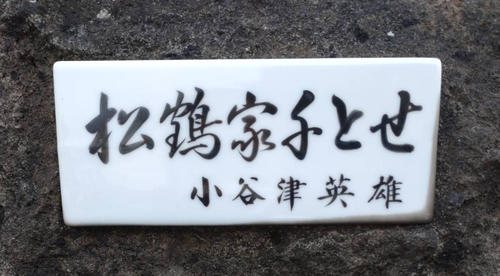 松鶴家千とせ
小谷津英雄